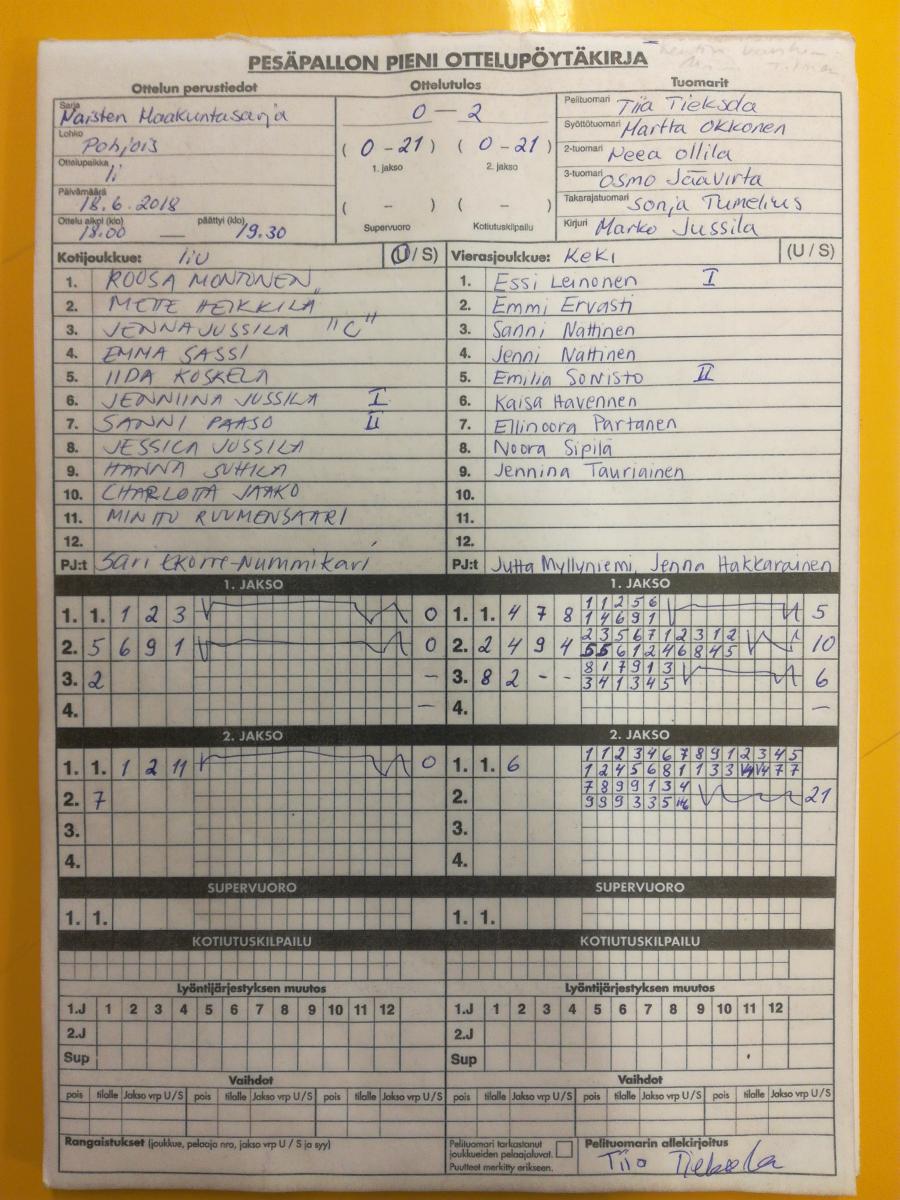 PESÄPALLON PIENI OTTELUPÖYTÄKIRJA
Ottelun perustiedot
Sarja Naisten Maakuntasarja
Lohko Pohjois
Ottelupaikka Ii
Päivämäärä 18.6.2018
Ottelu alkoi (klo) 18.00 — päättyi (klo) 19.30
Ottelutulos
0 — 2
( 0 - 21 ) ( 0 - 21 )
1. jakso 2. jakso
( - ) ( - )
Supervuoro Kotiutuskilpailu
Tuomarit
Pelituomari Tiia Tieksola
Syöttötuomari Martta Okkonen
2-tuomari Neea Ollila
3-tuomari Osmo Jäävirta
Takarajatuomari Sonja Tumelius
Kirjuri Marko Jussila
Kotijoukkue: IiU (U / S)
1. ROOSA MONTONEN
2. METTE HEIKKILÄ
3. JENNA JUSSILA "C"
4. EMMA SASSI
5. IIDA KOSKELA
6. JENNIINA JUSSILA I
7. SANNI PAASO II
8. JESSICA JUSSILA
9. HANNA SUHILA
10. CHARLOTTA JAAKO
11. MINTTU RUUMENSAARI
12.
PJ:t Sari Ekorre-Nummikari
Vierasjoukkue: KeKi (U / S)
1. Essi Leinonen I
2. Emmi Ervasti
3. Sanni Nättinen
4. Jenni Nättinen
5. Emilia Sonisto II
6. Kaisa Havennen
7. Ellinoora Partanen
8. Noora Sipilä
9. Jennina Tauriainen
10.
11.
12.
PJ:t Jutta Myllyniemi, Jenna Hakkarainen
1. JAKSO
1. 1. 1 2 3 0
2. 5 6 9 1 0
3. 2 -
4. -
2. JAKSO
1. 1. 1 2 11 0
2. 7
3.
4.
SUPERVUORO
1. 1.
KOTIUTUSKILPAILU
Lyöntijärjestyksen muutos
1.J 1 2 3 4 5 6 7 8 9 10 11 12
2.J
Sup
Vaihdot
pois tilalle Jakso vrp U / S pois tilalle Jakso vrp U / S pois tilalle Jakso vrp U / S
Rangaistukset (joukkue, pelaaja nro, jakso vrp U / S ja syy)
1. JAKSO
1 1 2 5 6
1. 1. 4 7 8 5
1 4 6 9 1
2 3 5 6 7 1 2 3 1 2
2. 2 4 9 4 10
5 5 6 1 2 4 6 8 4 5
8 1 7 9 1 3
3. 8 2 - - 6
3 4 1 3 4 5
4. -
2. JAKSO
1 1 2 3 4 6 7 8 9 1 2 3 4 5
1. 1. 6
1 2 4 5 6 8 1 1 3 3 V4 V4 7 7
7 8 9 9 1 3 4
2. 21
9 9 9 3 3 5
3.
4.
SUPERVUORO
1. 1.
KOTIUTUSKILPAILU
Lyöntijärjestyksen muutos
1.J 1 2 3 4 5 6 7 8 9 10 11 12
2.J
Sup
Vaihdot
pois tilalle Jakso vrp U / S pois tilalle Jakso vrp U / S pois tilalle Jakso vrp U / S
Pelituomari tarkastanut
joukkueiden pelaajaluvat.
Puutteet merkitty erikseen.
Pelituomarin allekirjoitus
Tiia Tieksola